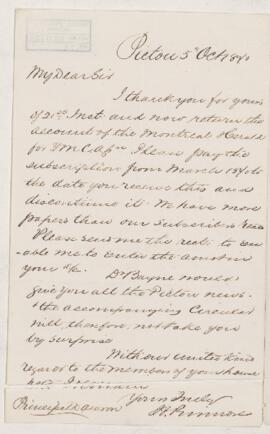 Pictou 5 Oct 1870
My Dear Sir
I thank you for yours
of 21st Inst. and now return the
account of the Montreal Herald
for YMCA Please pay the
subscription from March 1870 to
the date you receive this and
discontinue it. We have more
papers than our subscribers read
Please send me the rect. to en-
able me to enter the amount in
your a/c. Dr Bayne would
give you all the Pictou news.
& the accompanying Circular
will, therefore, not take you
by surprise
With our united kind
regards to the members of your house
hold I remain
Yours truly
Principal Dawson
H. Primrose